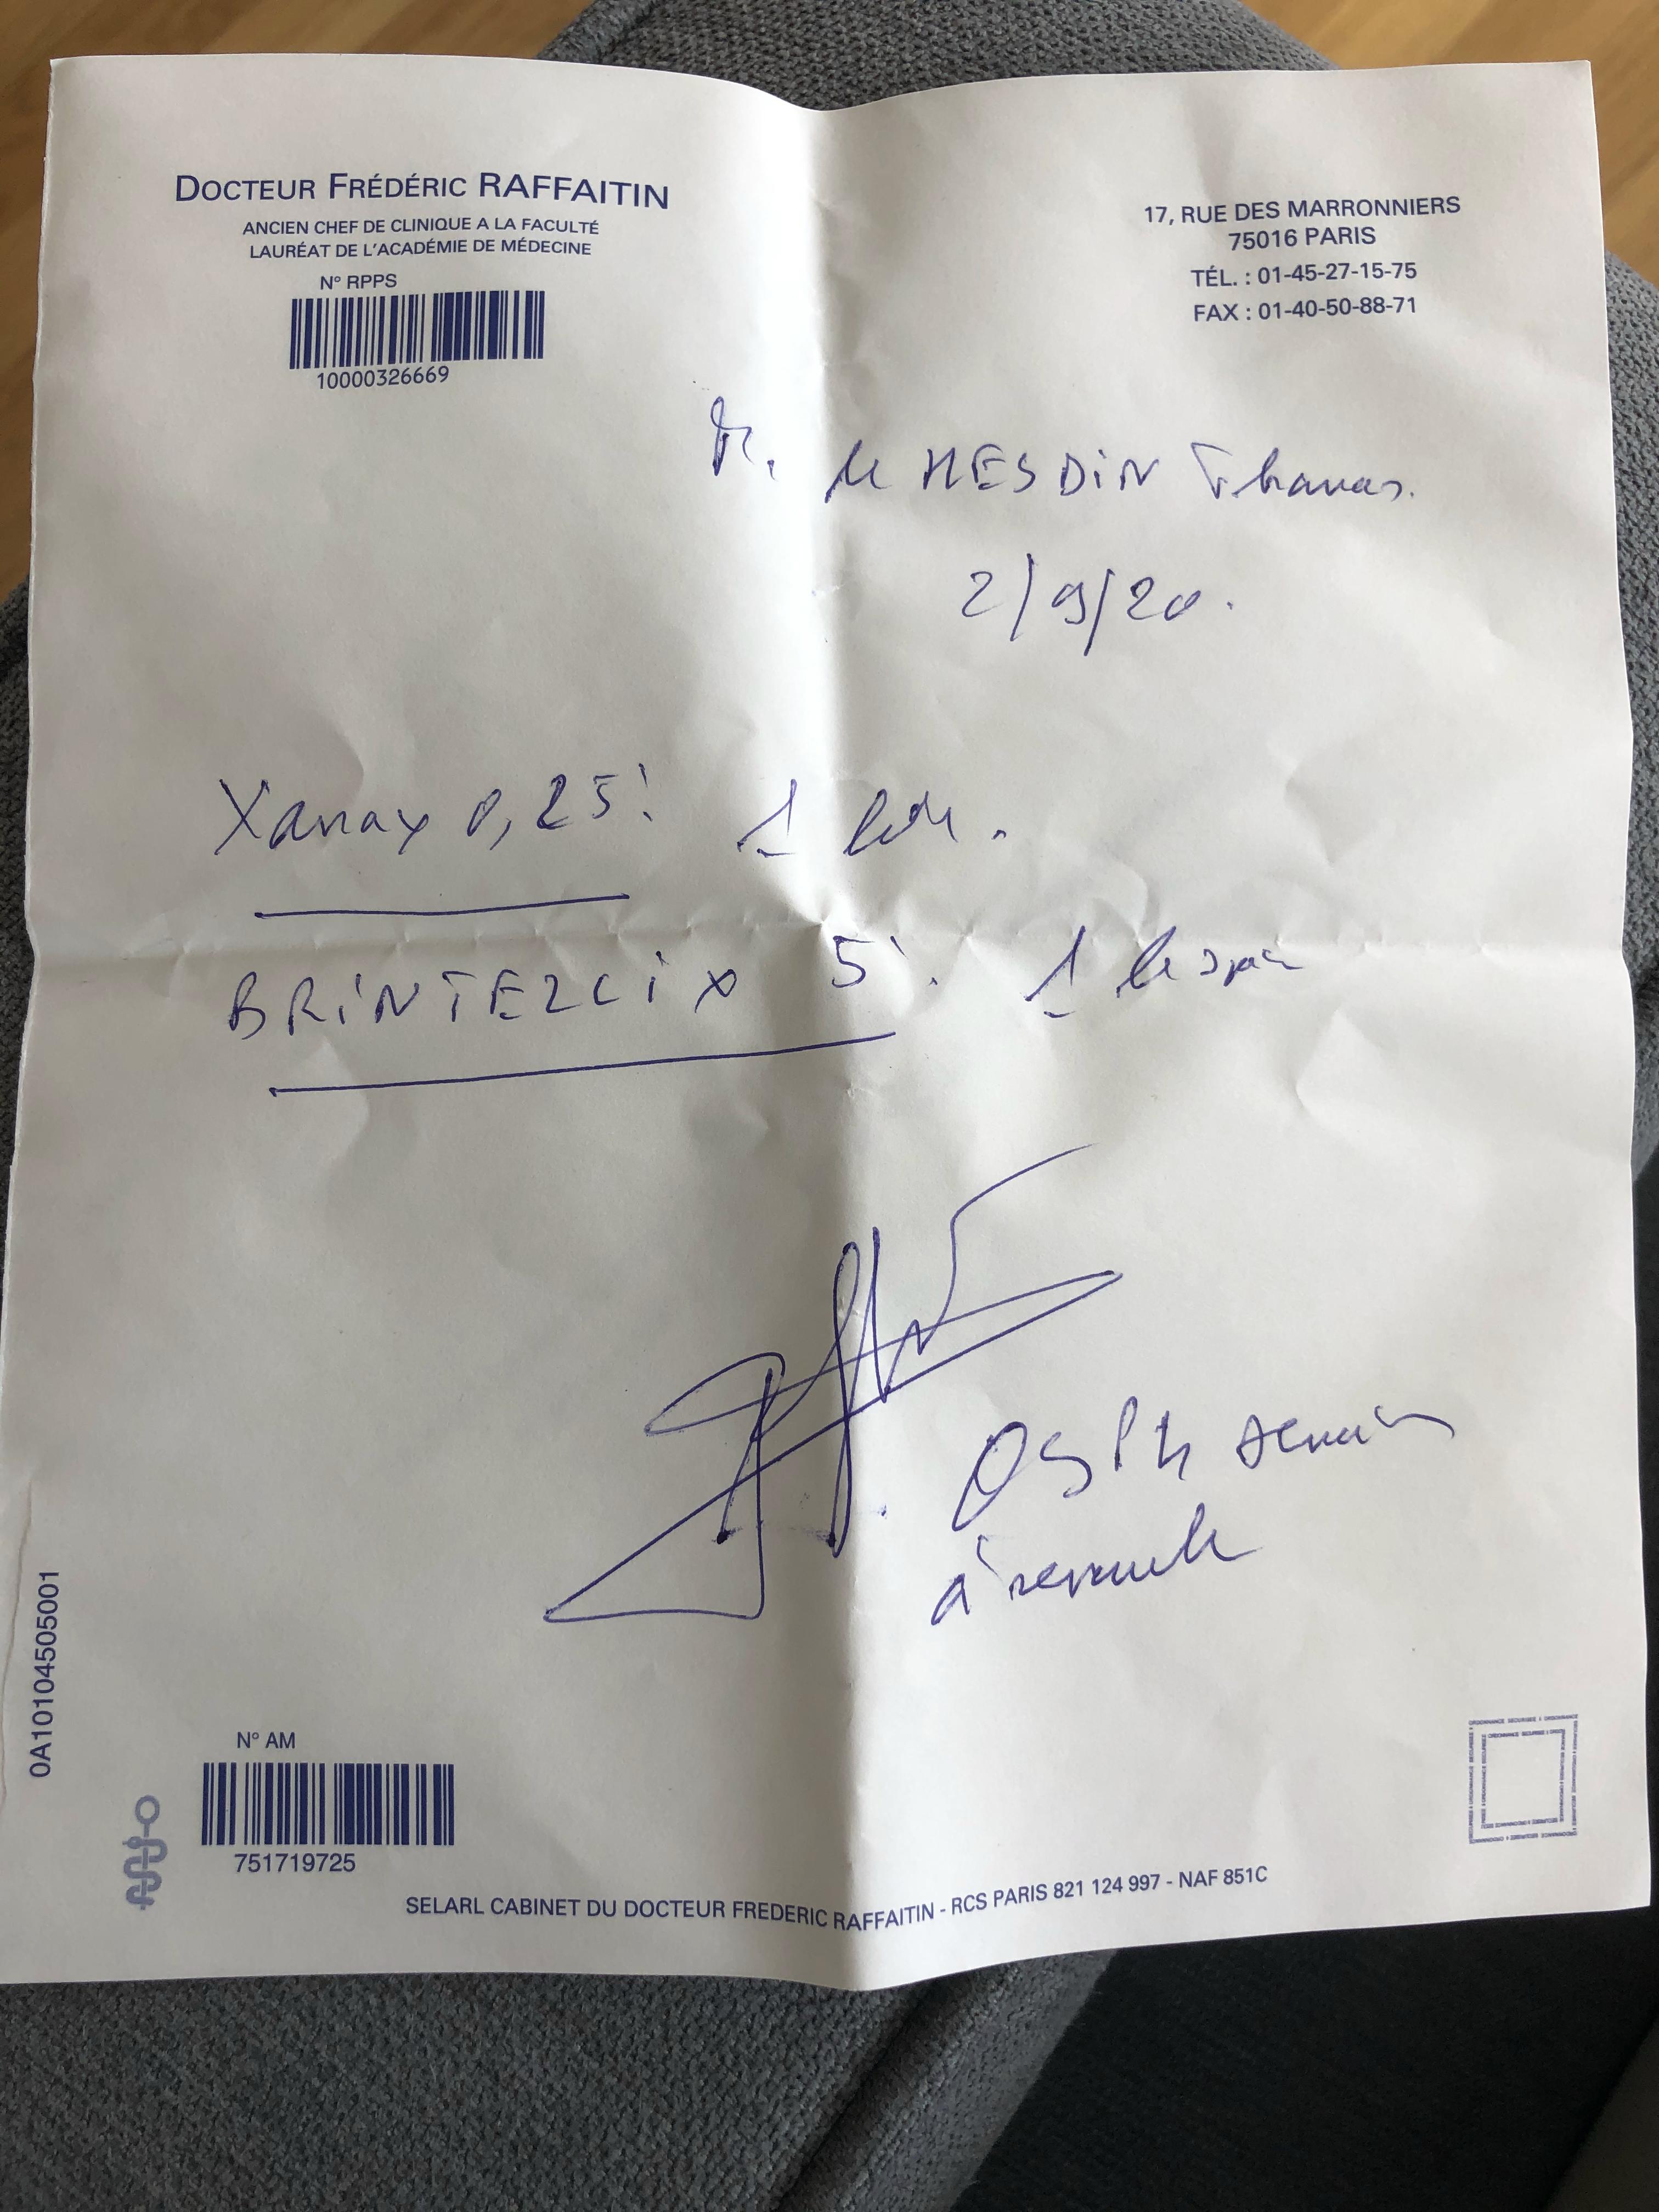 DOCTEUR FRÉDÉRIC RAFFAITIN
ANCIEN CHEF DE CLINIQUE A LA FACULTÉ
LAURÉAT DE L'ACADÉMIE DE MÉDECINE
N° RPPS
10000326669
17, RUE DES MARRONNIERS
75016 PARIS
TÉL. : 01-45-27-15-75
FAX : 01-40-50-88-71
M. de HESDIN Thomas.
2/9/20.
Xanax 0,25: 1
BRINTELLIX 5: 1 le soir
à renouveler
0A10104505001
N° AM
751719725
SELARL CABINET DU DOCTEUR FREDERIC RAFFAITIN - RCS PARIS 821 124 997 - NAF 851C